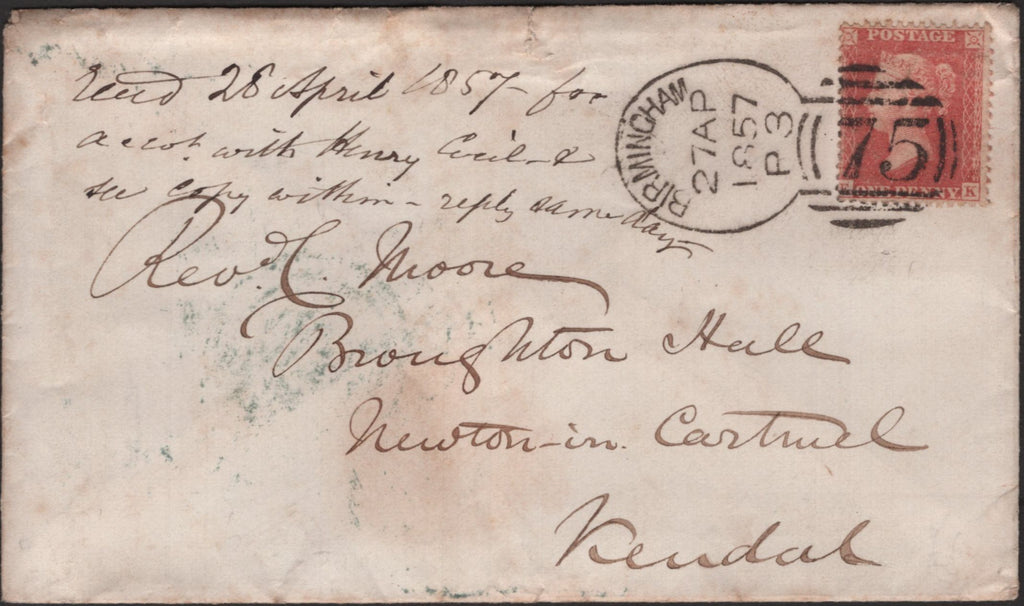 Recd 28 April 1857 - for
accot. with Henry Cecil - &
see copy within - reply same day
Revd. C. Moore
Broughton Hall
Newton-in. Cartmel
Kendal
BIRMINGHAM
27AP
1857
P3
75
POSTAGE
ONE PENNY
K